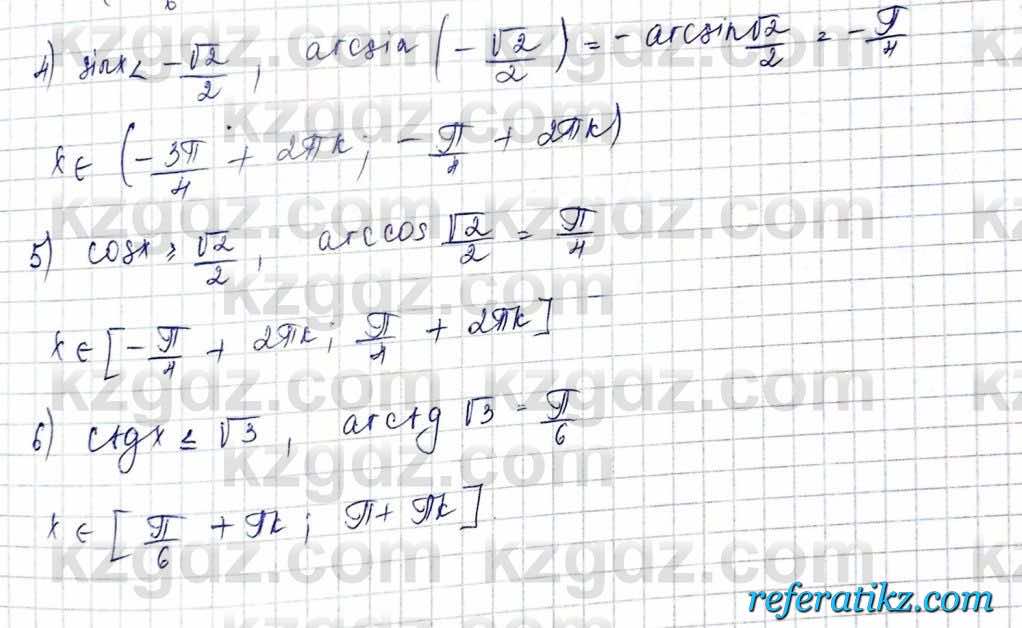 4) sinx < -√2/2, arcsin (-√2/2) = -arcsin √2/2 = -π/4
x ∈ (-3π/4 + 2πk; -π/4 + 2πk)
5) cosx ≥ √2/2, arccos √2/2 = π/4
x ∈ [-π/4 + 2πk; π/4 + 2πk]
6) ctgx ≤ √3, arcctg √3 = π/6
x ∈ [π/6 + πk; π + πk]
kzgdz.com
referatikz.com